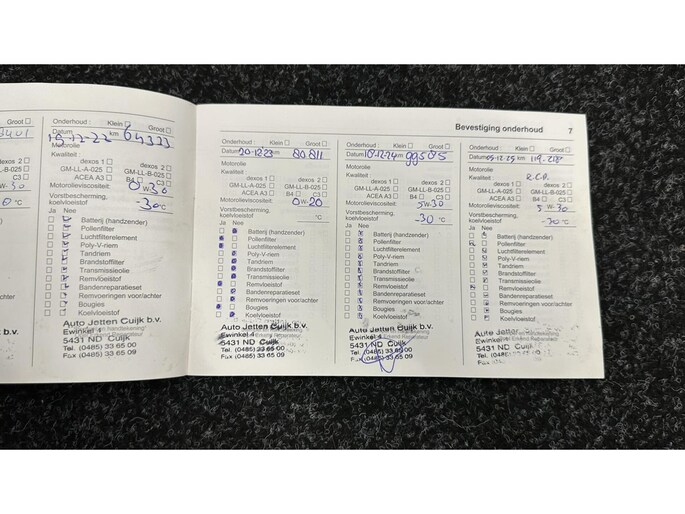 Onderhoud : Klein Groot
Datum 19-12-22 km 64323
Motorolie
Kwaliteit :
dexos 1 dexos 2
GM-LL-A-025 GM-LL-B-025
ACEA A3 B4 C3
Motorolieviscositeit: 0W30
Vorstbescherming,
koelvloeistof -30°C
Ja Nee
Batterij (handzender)
Pollenfilter
Luchtfilterelement
Poly-V-riem
Tandriem
Brandstoffilter
Transmissieolie
Remvloeistof
Bandenreparatieset
Remvoeringen voor/achter
Bougies
Koelvloeistof
Auto Jetten Cuijk b.v.
Ewinkel 4
5431 ND Cuijk
Tel. (0485) 33 65 00
Fax (0485) 33 65 09
Bevestiging onderhoud 7
Onderhoud : Klein Groot
Datum 20-12-23 km 80811
Motorolie
Kwaliteit :
dexos 1 dexos 2
GM-LL-A-025 GM-LL-B-025
ACEA A3 B4 C3
Motorolieviscositeit: 0W-20
Vorstbescherming,
koelvloeistof °C
Ja Nee
Batterij (handzender)
Pollenfilter
Luchtfilterelement
Poly-V-riem
Tandriem
Brandstoffilter
Transmissieolie
Remvloeistof
Bandenreparatieset
Remvoeringen voor/achter
Bougies
Koelvloeistof
Auto Jetten Cuijk b.v.
Ewinkel 4
5431 ND Cuijk
Tel. (0485) 33 65 00
Fax (0485) 33 65 09
Onderhoud : Klein Groot
Datum 18-12-24 km 99585
Motorolie
Kwaliteit :
dexos 1 dexos 2
GM-LL-A-025 GM-LL-B-025
ACEA A3 B4 C3
Motorolieviscositeit: 5W30
Vorstbescherming,
koelvloeistof -30 °C
Ja Nee
Batterij (handzender)
Pollenfilter
Luchtfilterelement
Poly-V-riem
Tandriem
Brandstoffilter
Transmissieolie
Remvloeistof
Bandenreparatieset
Remvoeringen voor/achter
Bougies
Koelvloeistof
Auto Jetten Cuijk b.v.
Ewinkel 4
5431 ND Cuijk
Tel. (0485) 33 65 00
Fax (0485) 33 65 09
Onderhoud : Klein Groot
Datum 05-12-25 km
Motorolie
Kwaliteit
dexos 1 dexos 2
GM-LL-A-025 GM-LL-B-025
ACEA A3 B4 C3
Motorolieviscositeit: 5W-30
Vorstbescherming,
koelvloeistof -30°C
Ja Nee
Batterij (handzender)
Pollenfilter
Luchtfilterelement
Poly-V-riem
Tandriem
Brandstoffilter
Transmissieolie
Remvloeistof
Bandenreparatieset
Remvoeringen voor/achter
Bougies
Koelvloeistof
Auto Jetten
Ewinkel
5431 ND Cuijk
Tel. (0485) 33 65 00
Fax (0485) 33 65 09